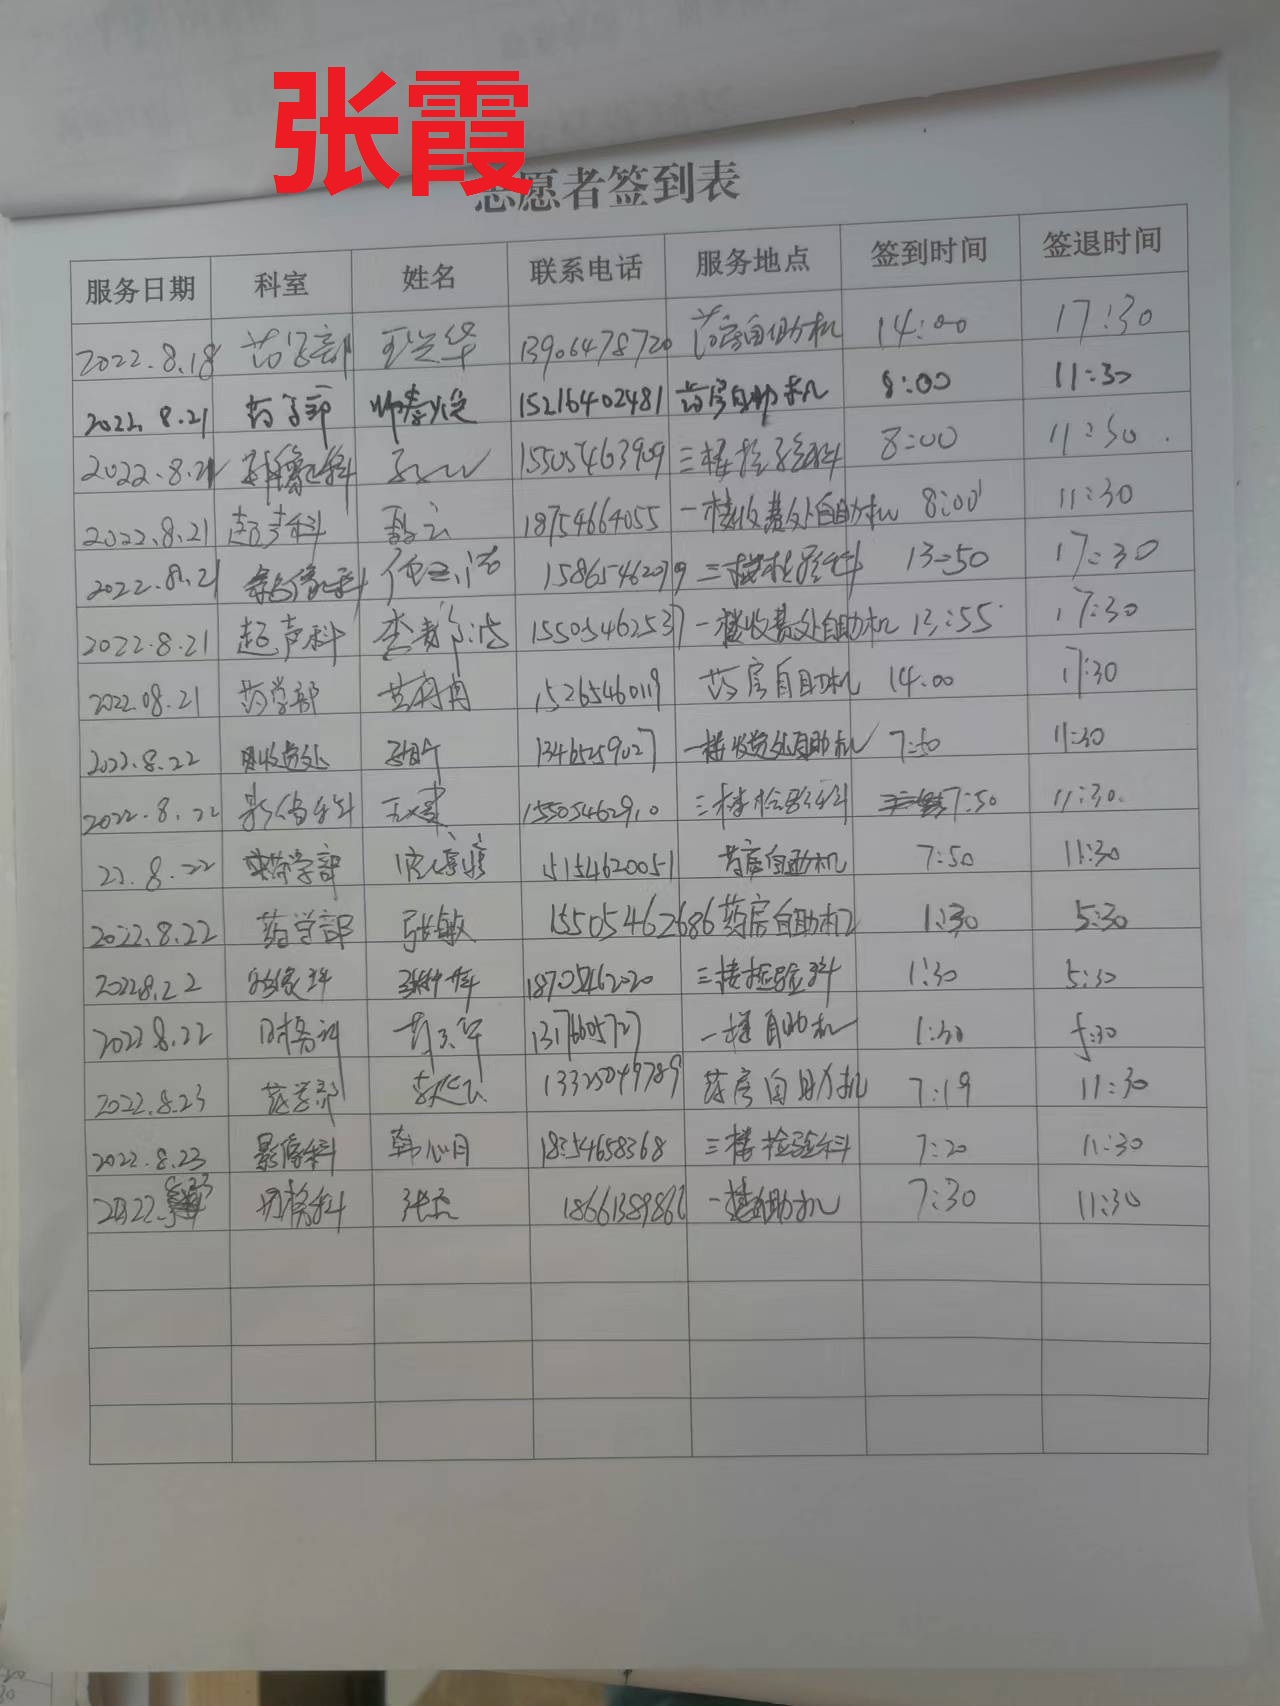 张霞
志愿者签到表
服务日期 科室 姓名 联系电话 服务地点 签到时间 签退时间
2022.8.18 药学部 王兰华 13906478720 药房自助机 14:00 17:30
2022.8.21 药学部 15216402481 药房自助机 8:00 11:30
2022.8.21 影像科 15505463909 三楼检验科 8:00 11:30.
2022.8.21 超声科 18754664055 一楼收费处自助机 8:00 11:30
2022.8.21 影像科 15865462079 三楼检验科 13:50 17:30
2022.8.21 超声科 15505462537 一楼收费处自助机 13:55 17:30
2022.08.21 药学部 15265460119 药房自助机 14:00 17:30
2022.8.22 收费处 13465259027 一楼收费处自助机 7:50 11:30
2022.8.22 影像科 15505462910 三楼检验科 7:50 11:30.
22.8.22 药学部 15154620051 药房自助机 7:50 11:30
2022.8.22 药学部 张敏 15505462686 药房自助机 1:30 5:30
2022 8.22 影像科 18705462020 三楼检验科 1:30 5:30
2022 8.22 财务科 一楼自助机 1:30 5:30
2022.8.23 药学部 13325049789 药房自助机 7:19 11:30
2022.8.23 影像科 韩心月 18354658368 三楼检验科 7:20 11:30
2022.8.23 财务科 张杰 一楼自助机 7:30 11:30